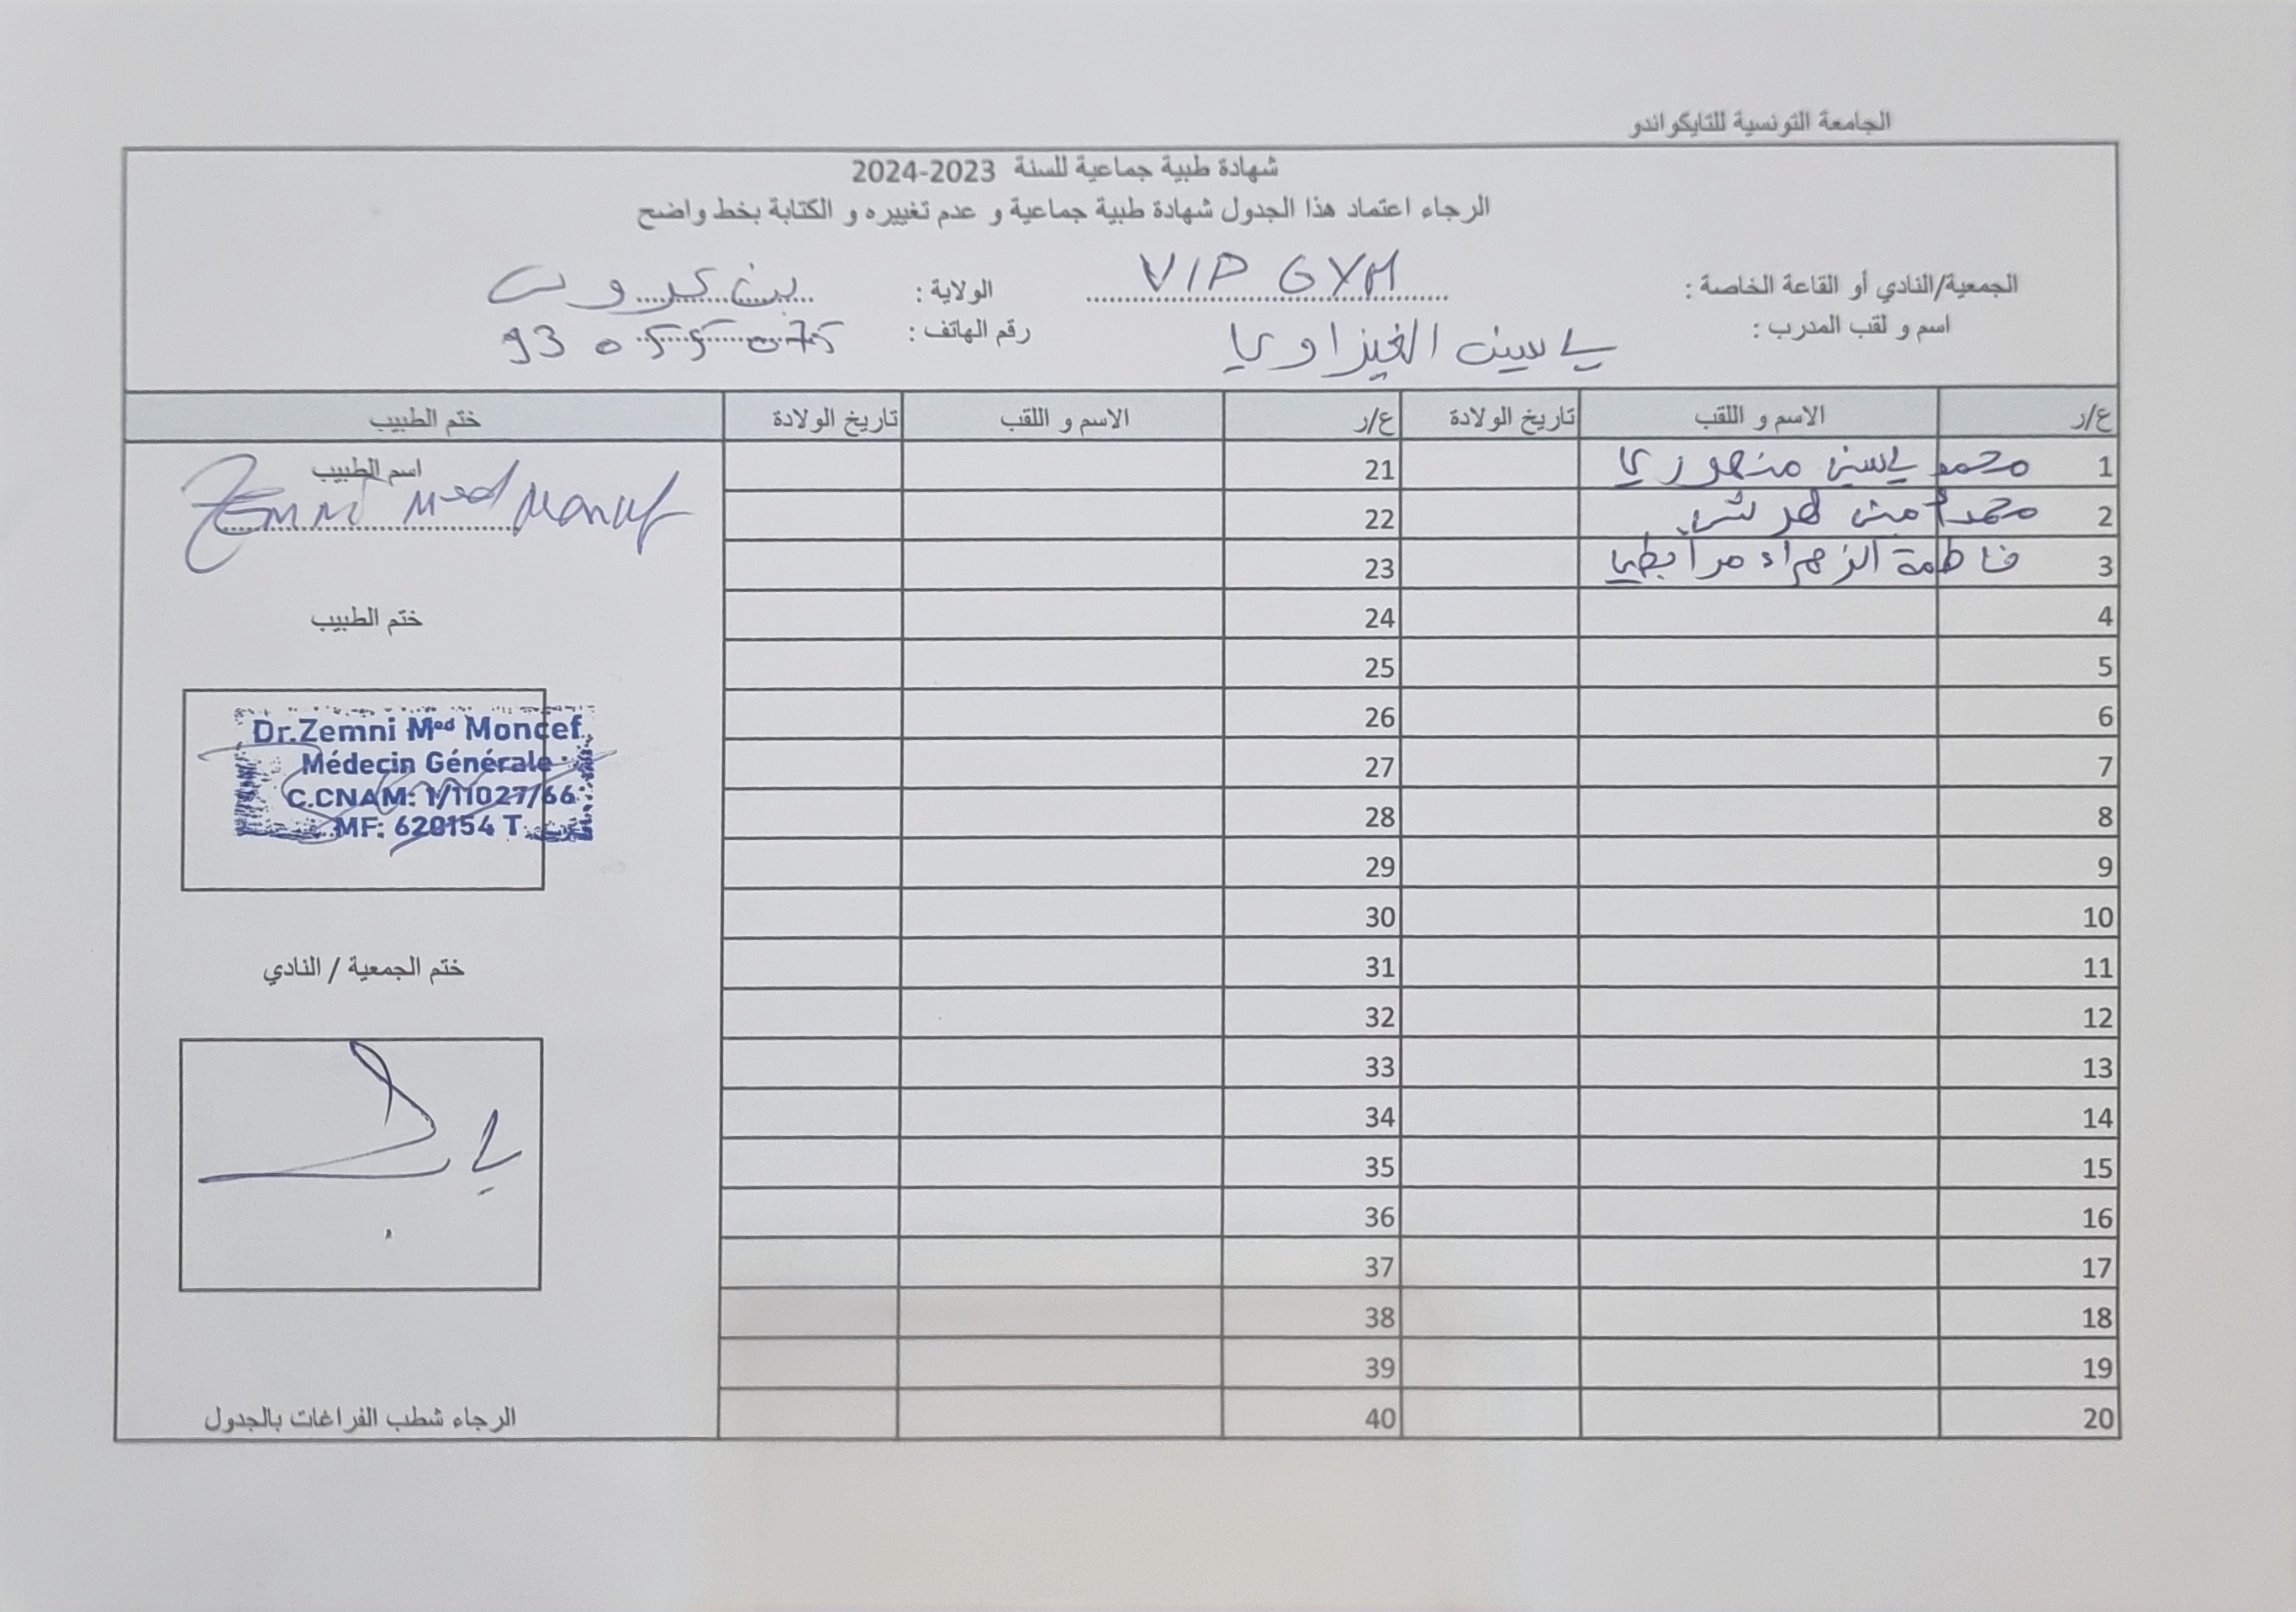 الجامعة التونسية للتايكواندو
شهادة طبية جماعية للسنة 2023-2024
الرجاء اعتماد هذا الجدول شهادة طبية جماعية و عدم تغييره و الكتابة بخط واضح
الجمعية/النادي أو القاعة الخاصة : VIP GYM الولاية :
اسم و لقب المدرب : ياسين الغيزاوي رقم الهاتف : 93 055 075
ع/ر الاسم و اللقب تاريخ الولادة ع/ر الاسم و اللقب تاريخ الولادة ختم الطبيب
1 محمد ياسين منصوري 21
2 محمد أمين 22
3 فاطمة الزهراء مرابطي 23
4 24
5 25
6 26
7 27
8 28
9 29
10 30
11 31
12 32
13 33
14 34
15 35
16 36
17 37
18 38
19 39
20 40
اسم الطبيب
Zemni Med Moncef
ختم الطبيب
Dr.Zemni Med Moncef
Médecin Générale
C.CNAM: 1/11027/66
MF: 620154 T
ختم الجمعية / النادي
الرجاء شطب الفراغات بالجدول